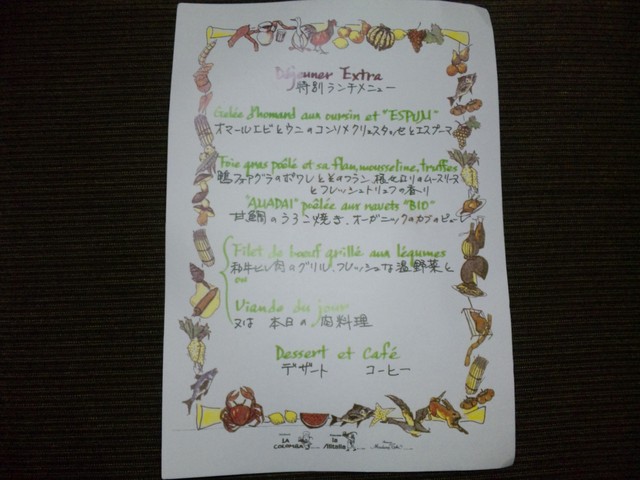 Déjeuner Extra
特別ランチメニュー
Gelée d'homard aux oursin et "ESPUM"
オマールエビとウニのコンソメクリュスタッセとエスプーマ
Foie gras poêlé et sa flan, mousseline, truffes
鴨フォアグラのポワレとそのフラン、根セロリのムースリーヌ
とフレッシュトリュフの香り
"AMADAI" poêlée aux navets "BIO"
甘鯛のうろこ焼き、オーガニックのカブの
Filet de bœuf grillé aux légumes
和牛ヒレ肉のグリル、フレッシュな温野菜と
ou
Viande du jour
又は 本日の肉料理
Dessert et Café
デザート コーヒー
LA COLOMBA
la Altalia